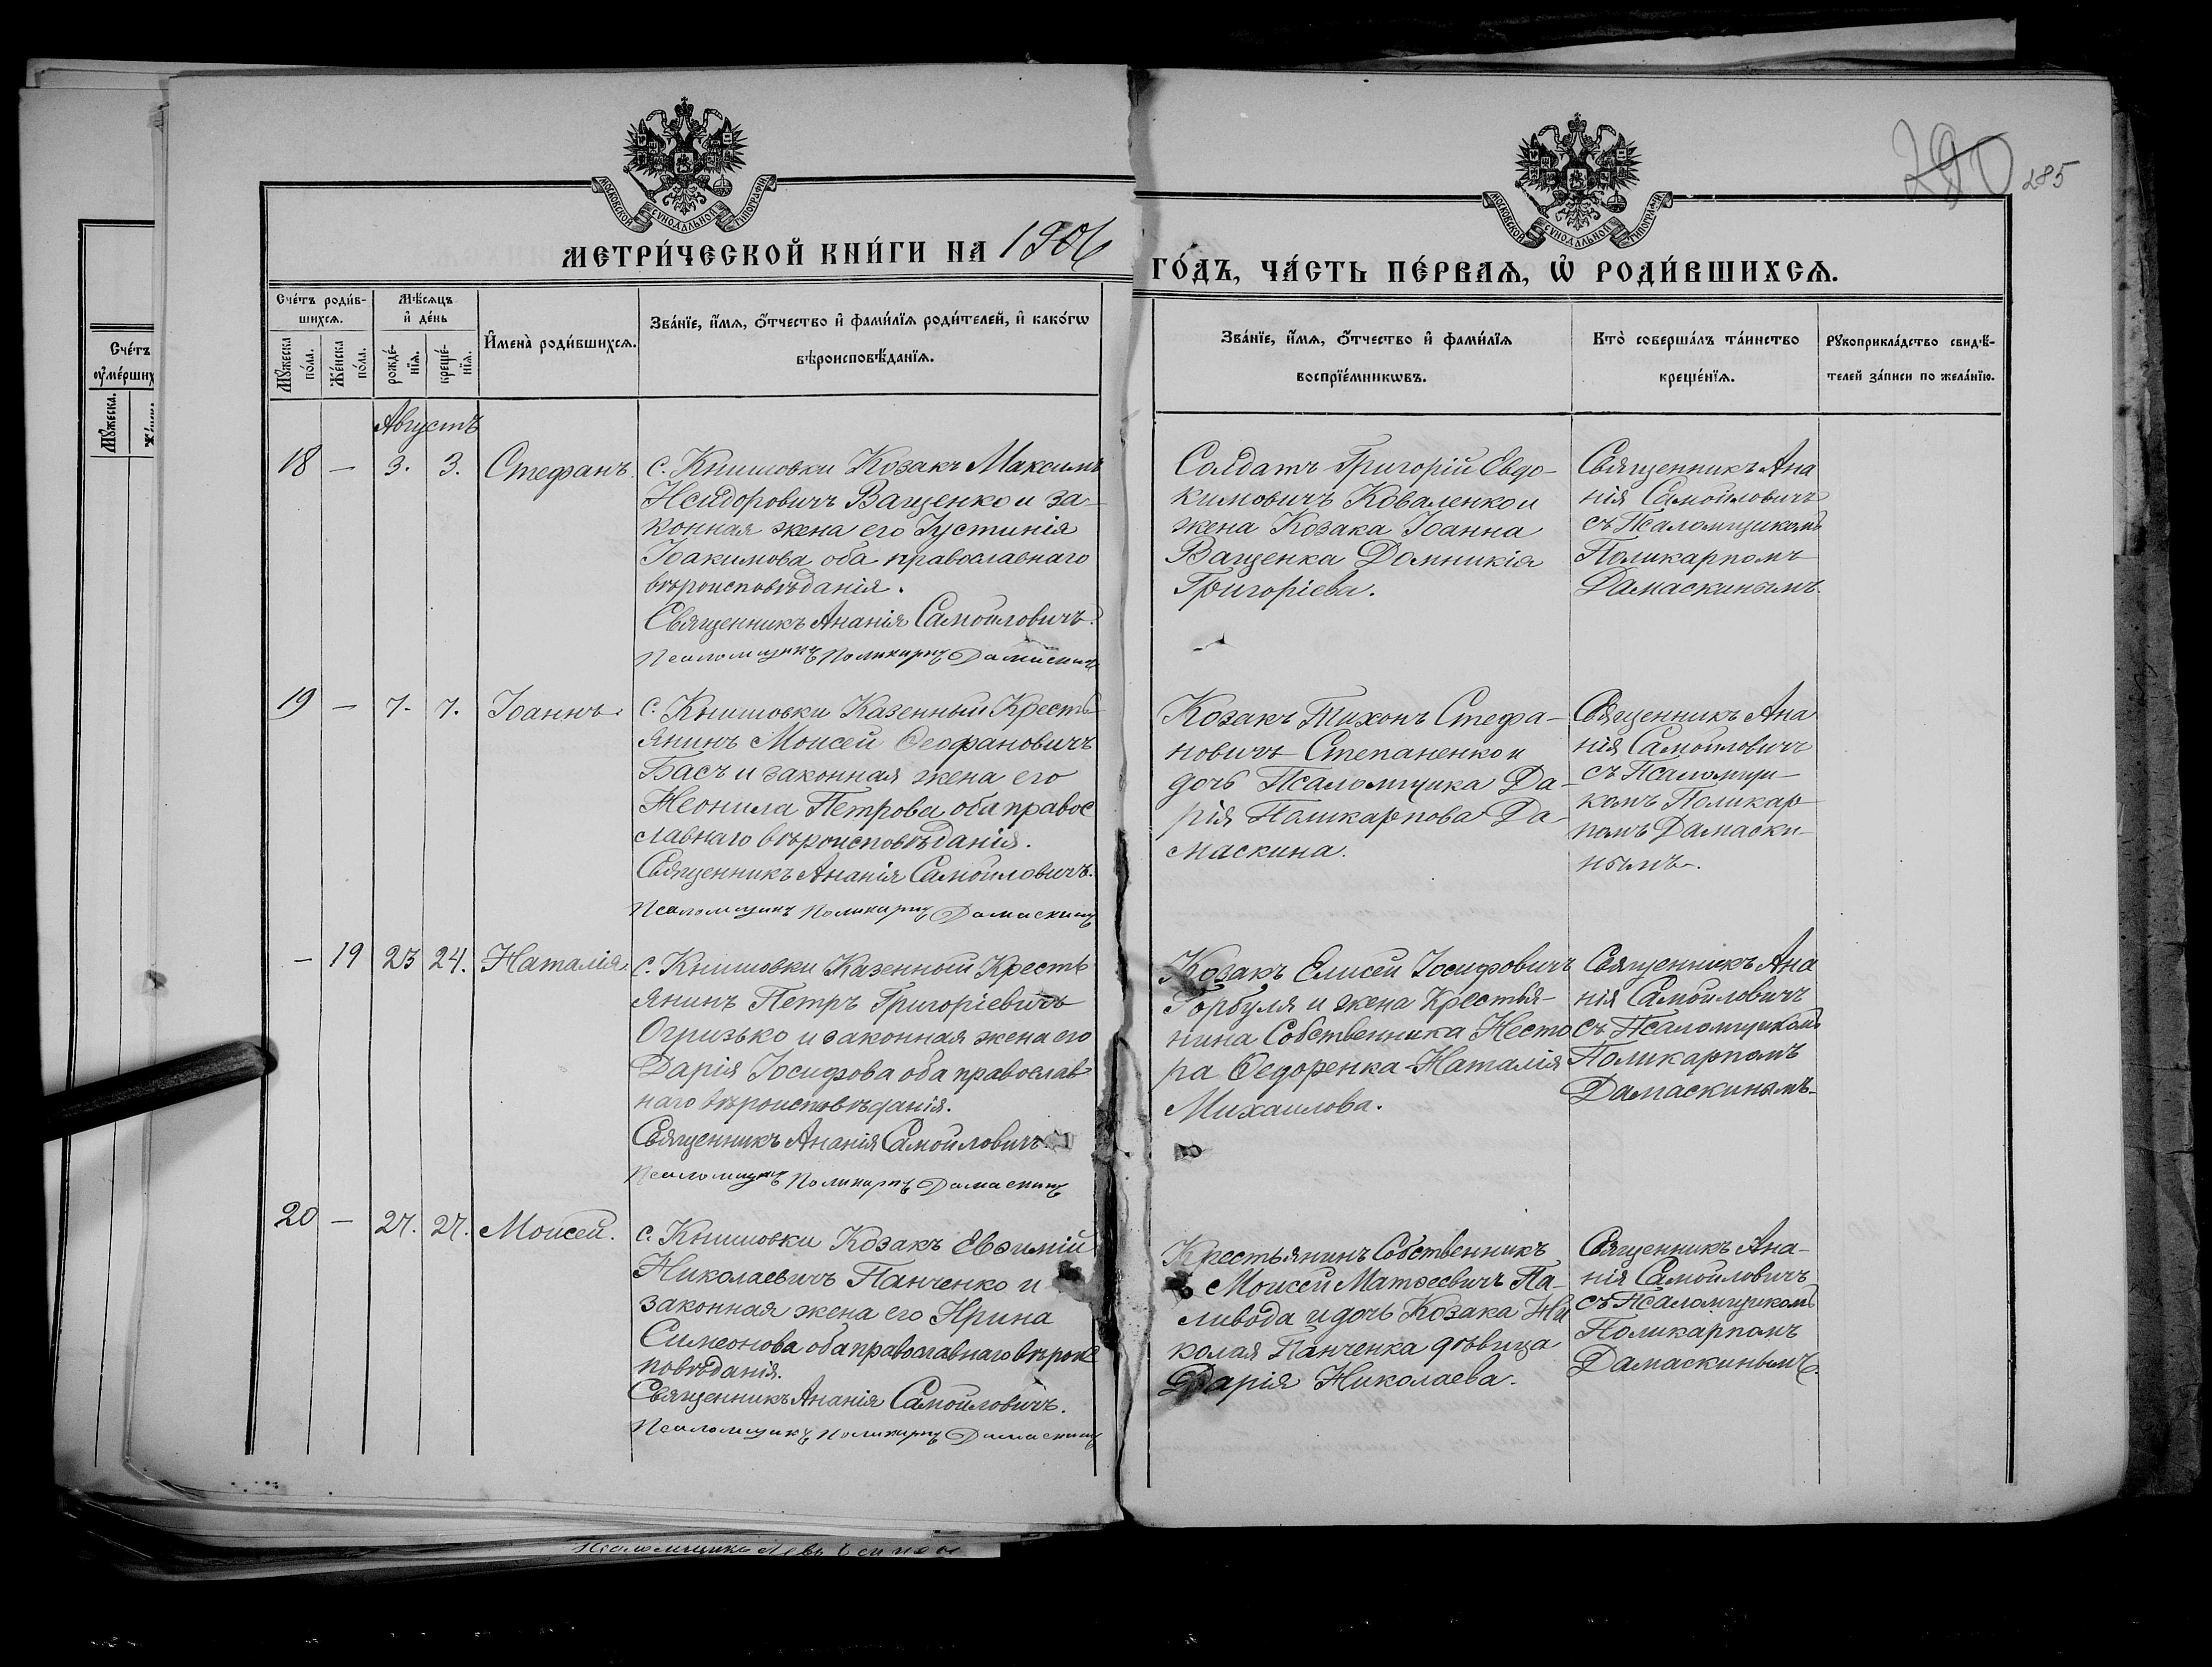 285
МОСКОВСКОЙ СѴНОДАЛЬНОЙ ТИПОГРАФІИ
МОСКОВСКОЙ СѴНОДАЛЬНОЙ ТИПОГРАФІИ
МЕТРИ́ЧЕСКОЙ КНИ́ГИ НА 1906
ГО́ДЪ, ЧА́СТЬ ПЕ́РВАѦ, Ѡ҆ РОДИ́ВШИХСѦ.
Сче́тъ
ᲂу҆ме́рших
Мꙋ́жеска.
Сче́тъ роди́в-
шихсѧ.
Мꙋ́жеска по́ла.
Же́нска по́ла.
Мѣ́сѧцъ
и҆ де́нь
рожде́-
нїѧ.
креще́-
нїѧ.
И҆мена̀ роди́вшихсѧ.
Зва́нїе, и҆́мѧ, ѻ҆́тчество и҆ фами́лїѧ роди́телей, и҆ како́гѡ
вѣроисповѣ́данїѧ.
Зва́нїе, и҆́мѧ, ѻ҆́тчество и҆ фами́лїѧ
воспрїе́мникѡвъ.
Кто̀ соверша́лъ та́инство
креще́нїѧ.
Рꙋкоприкла́дство свидѣ́-
телей за́писи по жела́нїю.
Августъ
18 — 3. 3. Стефанъ.
с. Кнышовки Козакъ Максимъ
Исидоровичъ Ващенко и за-
конная жена его Іустинія
Іоакимова оба православнаго
вѣроисповѣданія.
Священникъ Ананія Самойловичъ.
Псаломщикъ Поликарпъ Дамаскинъ
Солдатъ Григорій Евдо-
кимовичъ Коваленко и
жена Козака Іоанна
Ващенка Домникія
Григоріева.
Священникъ Ана
нія Самойловичъ
съ Псаломщикомъ
Поликарпомъ
Дамаскинымъ.
19 — 7. 7. Іоаннъ.
с. Кнышовки Казенный Кресть
янинъ Моисей Ѳеофановичъ
Басъ и законная жена его
Неонила Петрова оба правос
славнаго вѣроисповѣданія.
Священникъ Ананія Самойловичъ.
Псаломщикъ Поликарпъ Дамаскинъ
Козакъ Тихонъ Стефа-
новичъ Степаненко и
дочь Псаломщика Да-
рія Поликарпова Да-
маскина.
Священникъ Ана
нія Самойловичъ
съ Псаломщи-
комъ Поликар
помъ Дамаски-
нымъ.
— 19 23 24. Наталія.
с. Кнышовки Казенный Кресть
янинъ Петръ Григоріевичъ
Огризько и законная жена его
Дарія Іосифова оба православ
наго вѣроисповѣданія.
Священникъ Ананія Самойловичъ
Псаломщикъ Поликарпъ Дамаскинъ
Козакъ Елисей Іосифовичъ
Горбуля и жена Крестья-
нина Собственника Несто
ра Ѳедоренка Наталія
Михаилова.
Священникъ Ана
нія Самойловичъ
съ Псаломщикомъ
Поликарпомъ
Дамаскинымъ.
20 — 27. 27. Моисей.
с. Кнышовки Козакъ Евѳимій
Николаевичъ Панченко и
законная жена его Ирина
Симеонова оба православнаго вѣроис
повѣданія.
Священникъ Ананія Самойловичъ.
Псаломщикъ Поликарпъ Дамаскинъ
Крестьянинъ Собственникъ
Моисей Матѳеевичъ Па-
ливода и дочь Козака Ни
колая Панченка дѣвица
Дарія Николаева.
Священникъ Ана-
нія Самойловичъ
съ Псаломщикомъ
Поликарпомъ
Дамаскинымъ.
Псаломщикъ